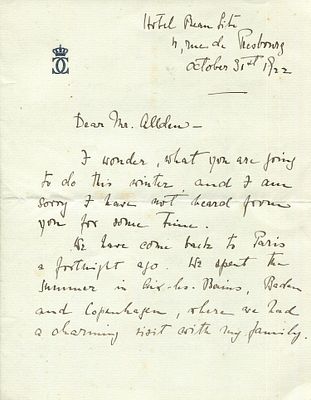 Hotel Beau Site
4, rue de Presbourg
October 31st 1922
Dear Mr. Allden –
I wonder, what you are going
to do this winter, and I am
sorry I have not heard from
you for some time.
We have come back to Paris
a fortnight ago. We spent the
summer in Aix-les-Bains, Baden
and Copenhagen, where we had
a charming visit with my family.